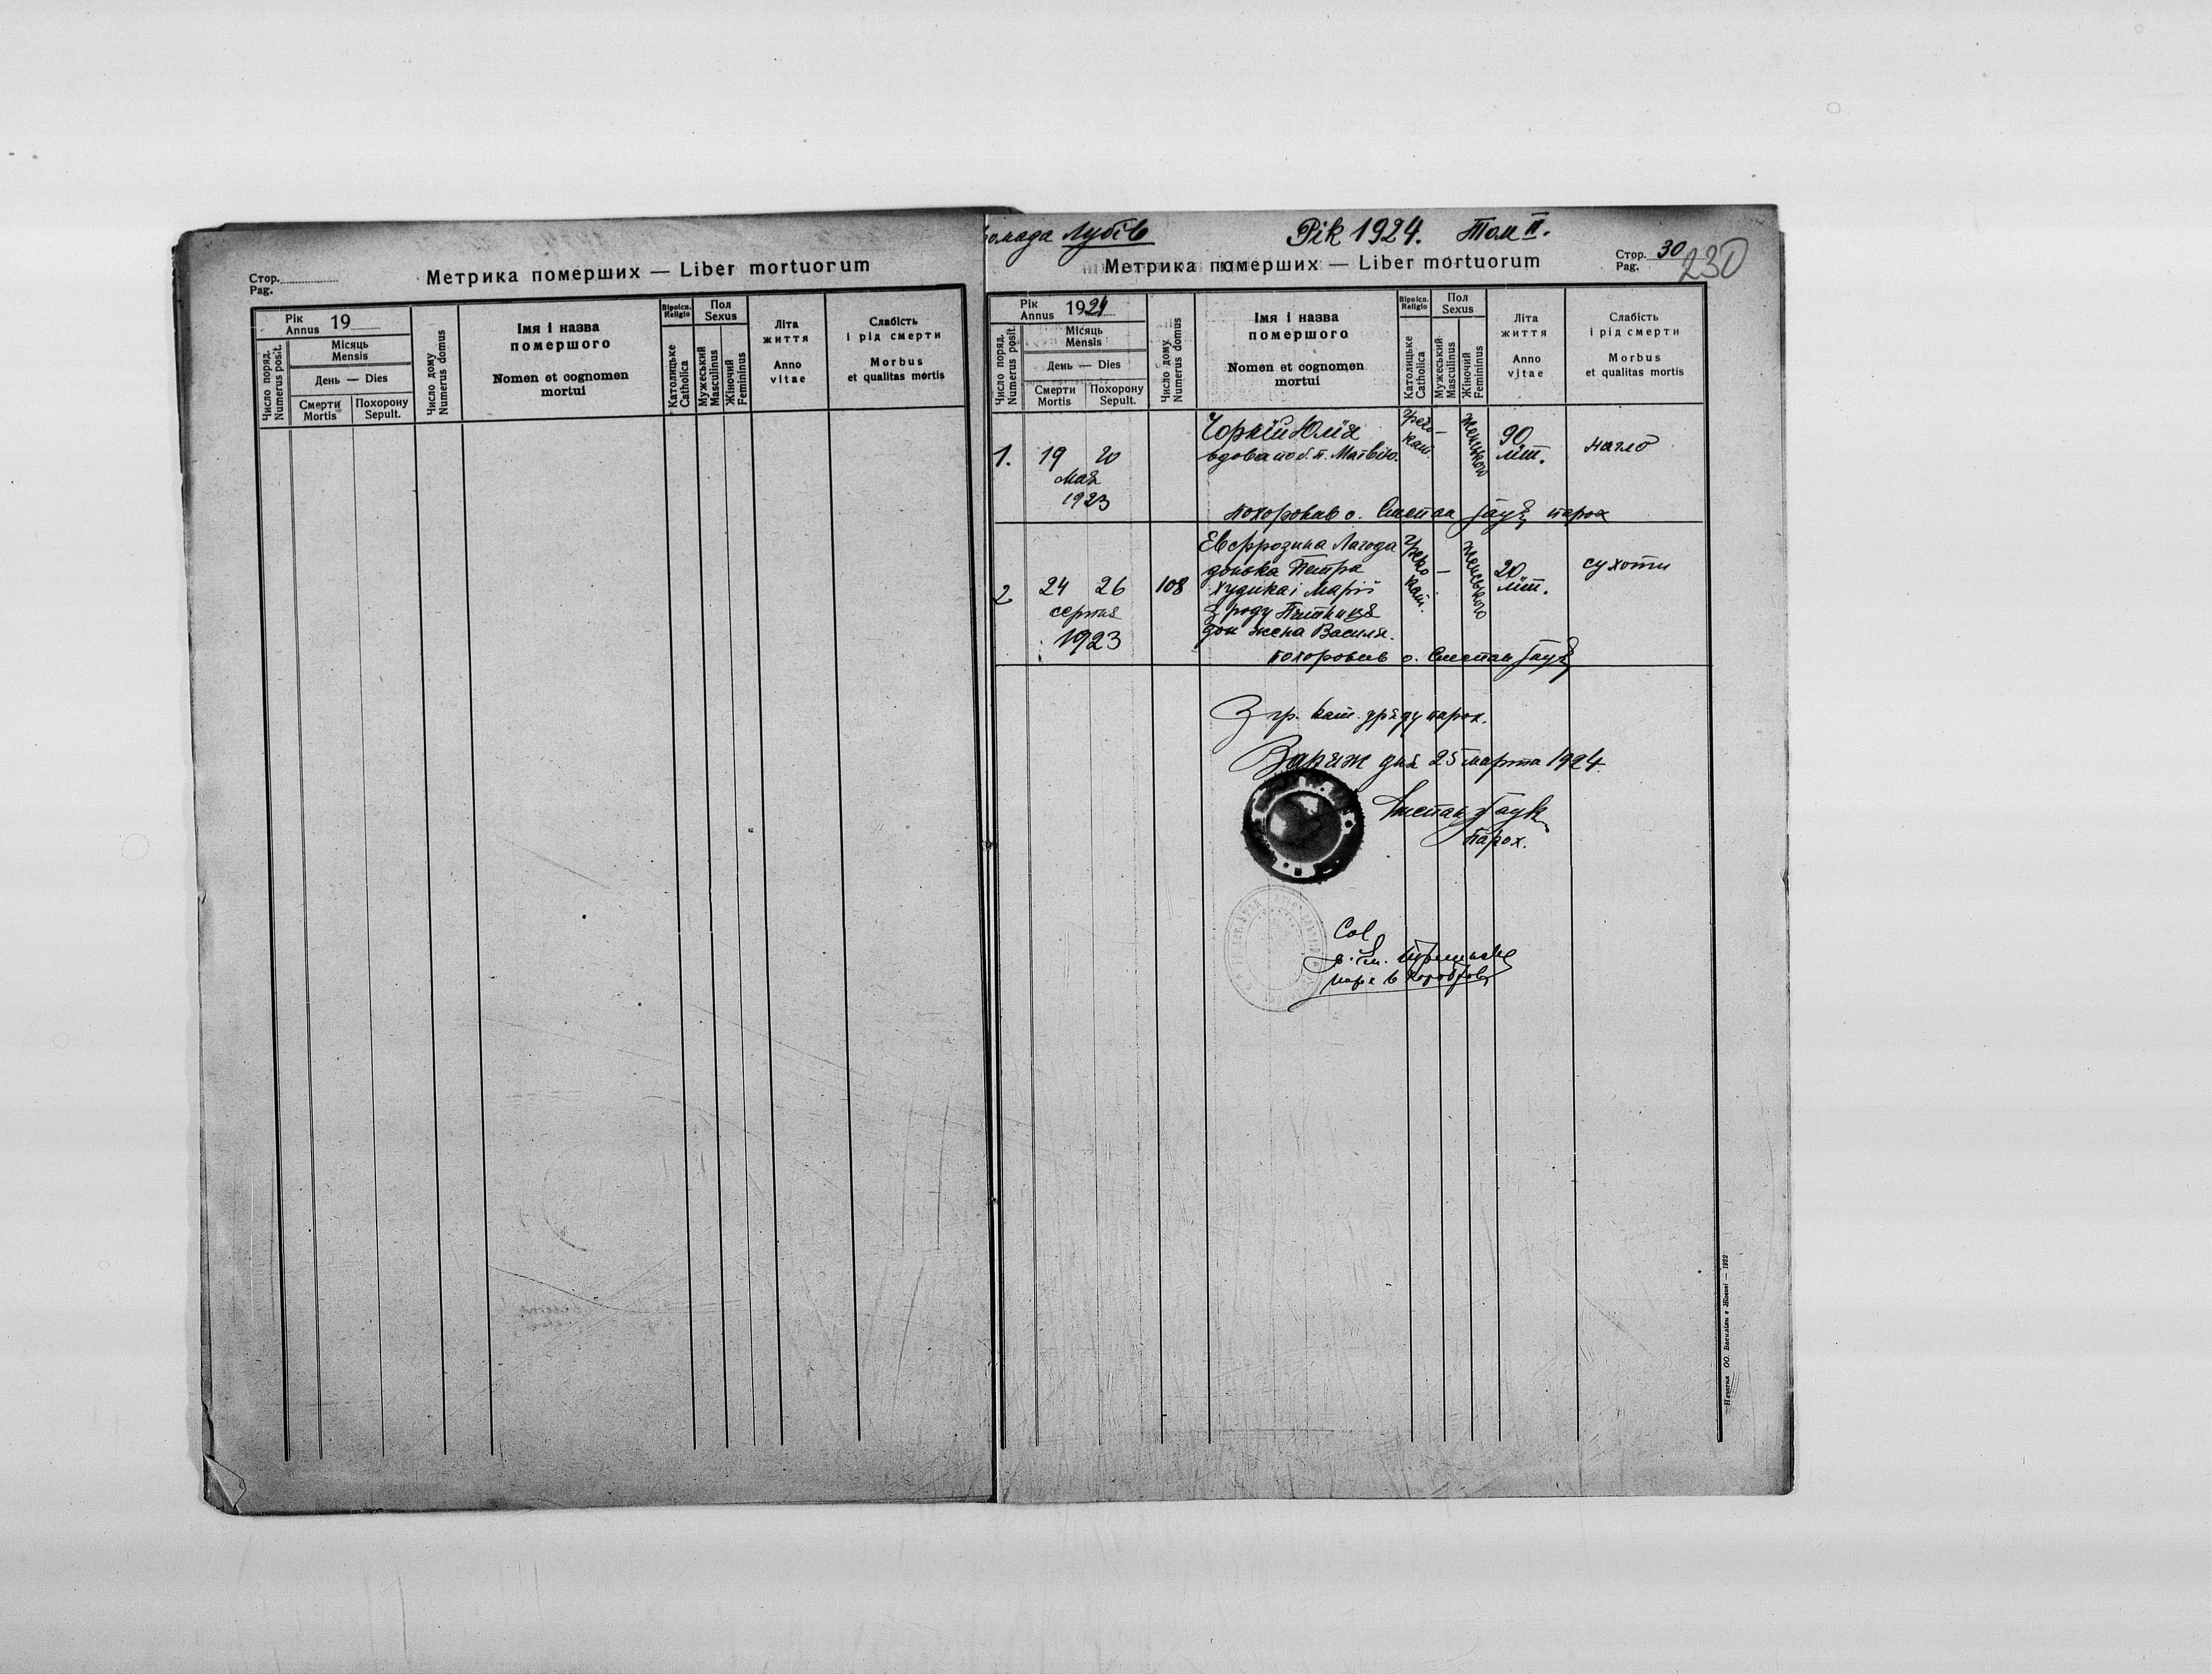 Стор.
Pag.
Метрика померших — Liber mortuorum
Рік
Annus 19
Число поряд.
Numerus posit.
Місяць
Mensis
День — Dies
Смерти
Mortis
Похорону
Sepult.
Число дому
Numerus domus
Імя і назва
помершого
Nomen et cognomen
mortui
Віроісп.
Religio
Католицьке
Catholica
Пол
Sexus
Мужеський
Masculinus
Жіночий
Femininus
Літа
життя
Anno
vitae
Слабість
і рід смерти
Morbus
et qualitas mortis
омада Лубів
Рік 1924. Том II.
Стор. 30
Pag.
230
Метрика померших — Liber mortuorum
Рік
Annus 1924
Число поряд.
Numerus posit.
Місяць
Mensis
День — Dies
Смерти
Mortis
Похорону
Sepult.
Число дому
Numerus domus
Імя і назва
помершого
Nomen et cognomen
mortui
Віроісп.
Religio
Католицьке
Catholica
Пол
Sexus
Мужеський
Masculinus
Жіночий
Femininus
Літа
життя
Anno
vitae
Слабість
і рід смерти
Morbus
et qualitas mortis
1. 19 20
мая
1923
Чорній Юлія
вдова по б. п. Матвію.
греко
кат.
—
90
літ.
нагло
похоронив о. Стефан парох
2 24 26
серпня
1923
108
Евфрозина Лагода
донька Петра
Худика і Марії
з роду
жена Василя.
греко
кат.
—
женського
20
літ.
сухоти
похоронив о. Стефан
З гр. кат. уряду парох.
дня 25 марта 1924.
Стефан
парох.
Печатня ОО. Василіян в Жовкві — 1922